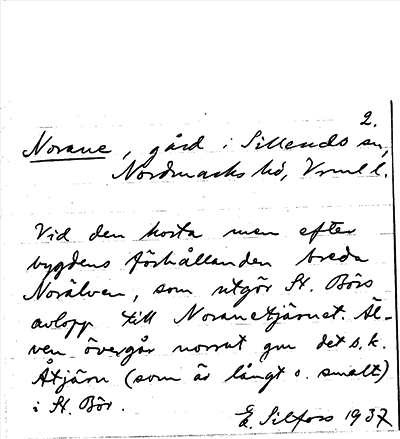 2.
Norane, gård i Silleruds sn,
Nordmarks hd, Vrml l.
Vid den korta men efter
bygdens förhållanden breda
Norälven, som utgör St. Börs
avlopp till Noranetjärnet. Äl-
ven övergår norrut gm det s.k.
Åtjärn (som är långt o. smalt)
i St. Bör.
E. Silfors 1937